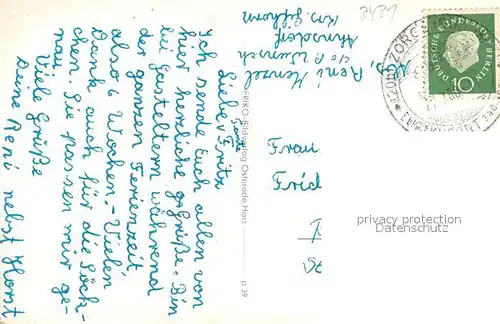 3421
Abs. Reni Henzel
c/o P. Wunsch
Ahnsdorf
Krs. Gifhorn
Liebe Fritz
Tante
Ich sende Euch allen von
hier herzliche Grüße. Bin
bei Gasteltern während
der ganzen Ferienzeit
also 6 Wochen. - Vielen
Dank auch für die Söck-
chen. Sie passen mir ge-
nau.
Viele Grüße
Deine Reni nebst Horst
FRIKO-Bildverlag Osterode/Harz
p 39
DEUTSCHE BUNDESPOST BERLIN
10
ZORGE
Frau
Frid
privacy protection
Datenschutz